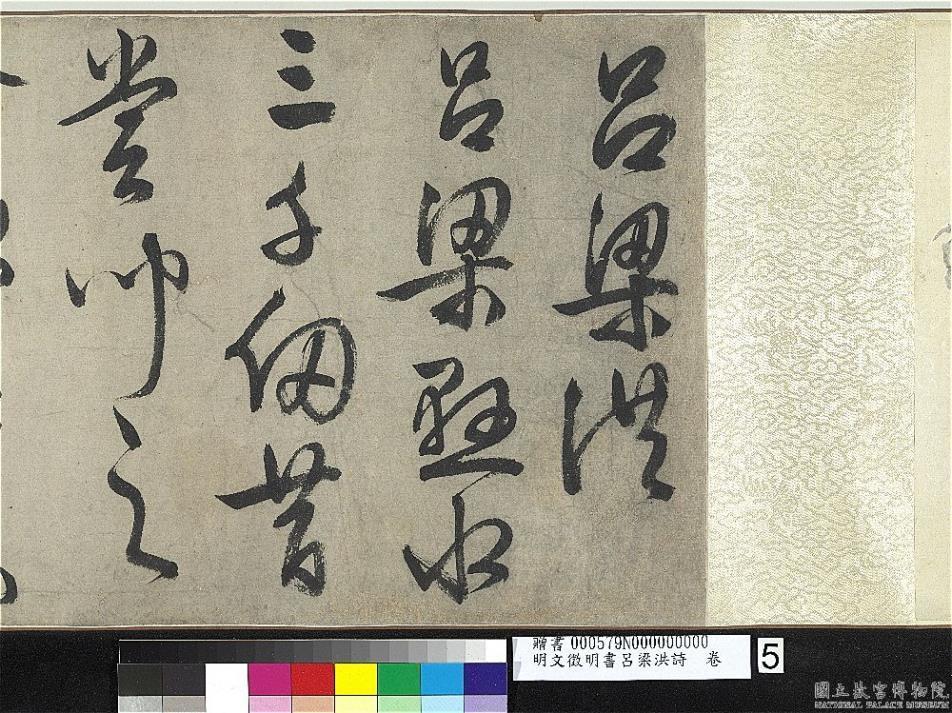 呂梁洪
呂梁懸水
三千仞昔
嘗聞之
贈書 000579N000000000
明文徵明書呂梁洪詩 卷
5
國立故宮博物院
NATIONAL PALACE MUSEUM